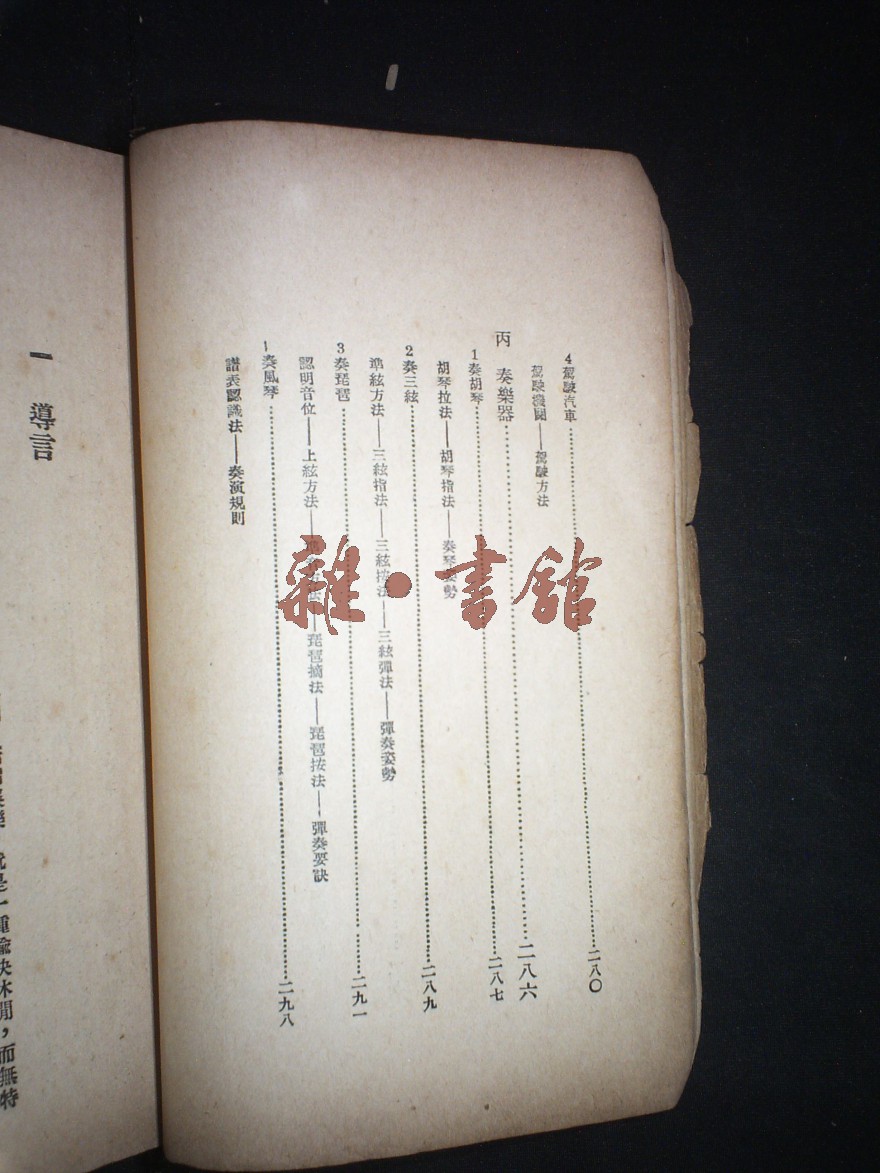 4 駕駛汽車……二八〇
駕駛機關——駕駛方法
丙 奏樂器……二八六
1 奏胡琴……二八七
胡琴拉法——胡琴指法——奏琴姿勢
2 奏三絃……二八九
準絃方法——三絃指法——三絃按法——三絃彈法——彈奏姿勢
3 奏琵琶……二九一
認明音位——上絃方法——琵琶摘法——琵琶按法——彈奏要訣
奏風琴……二九八
譜表認識法——奏演規則
一 導言
就是一種愉快休閒，而無特
雜·書館